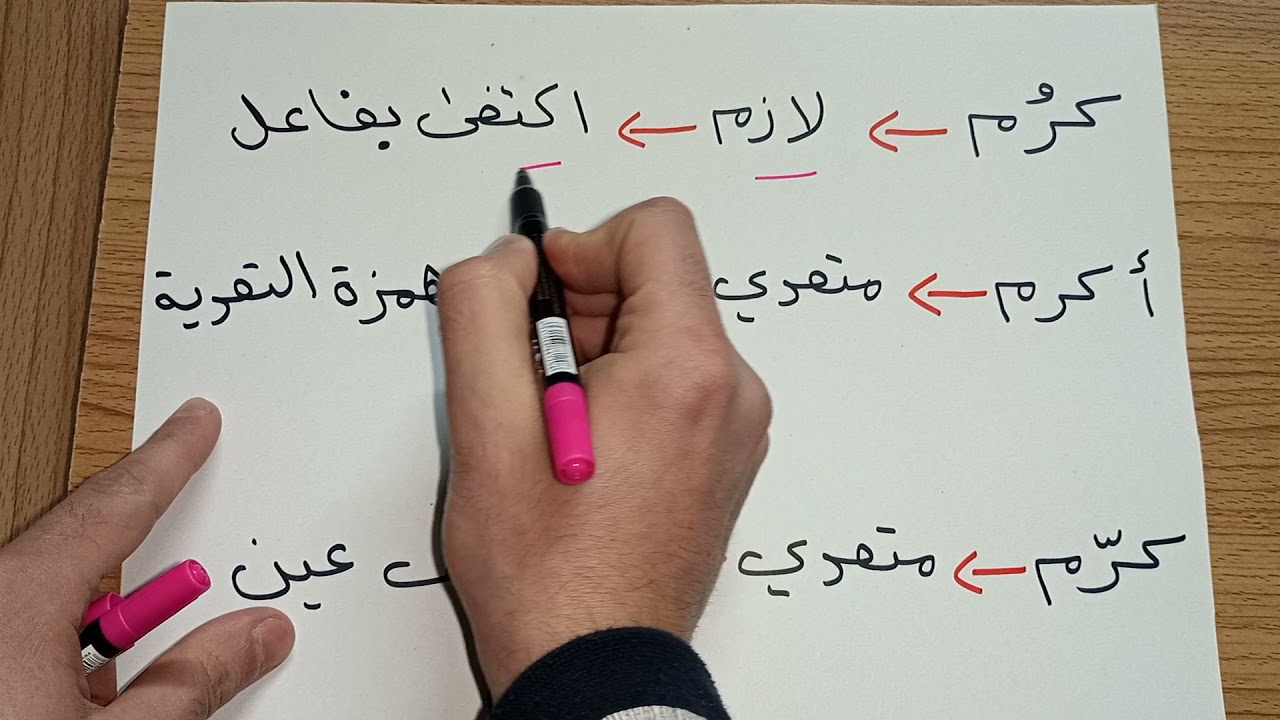 كرُم ← لازم ← اكتفىٰ بفاعل
أكرم ← متعدي همزة التعدية
كرّم ← متعدي عين